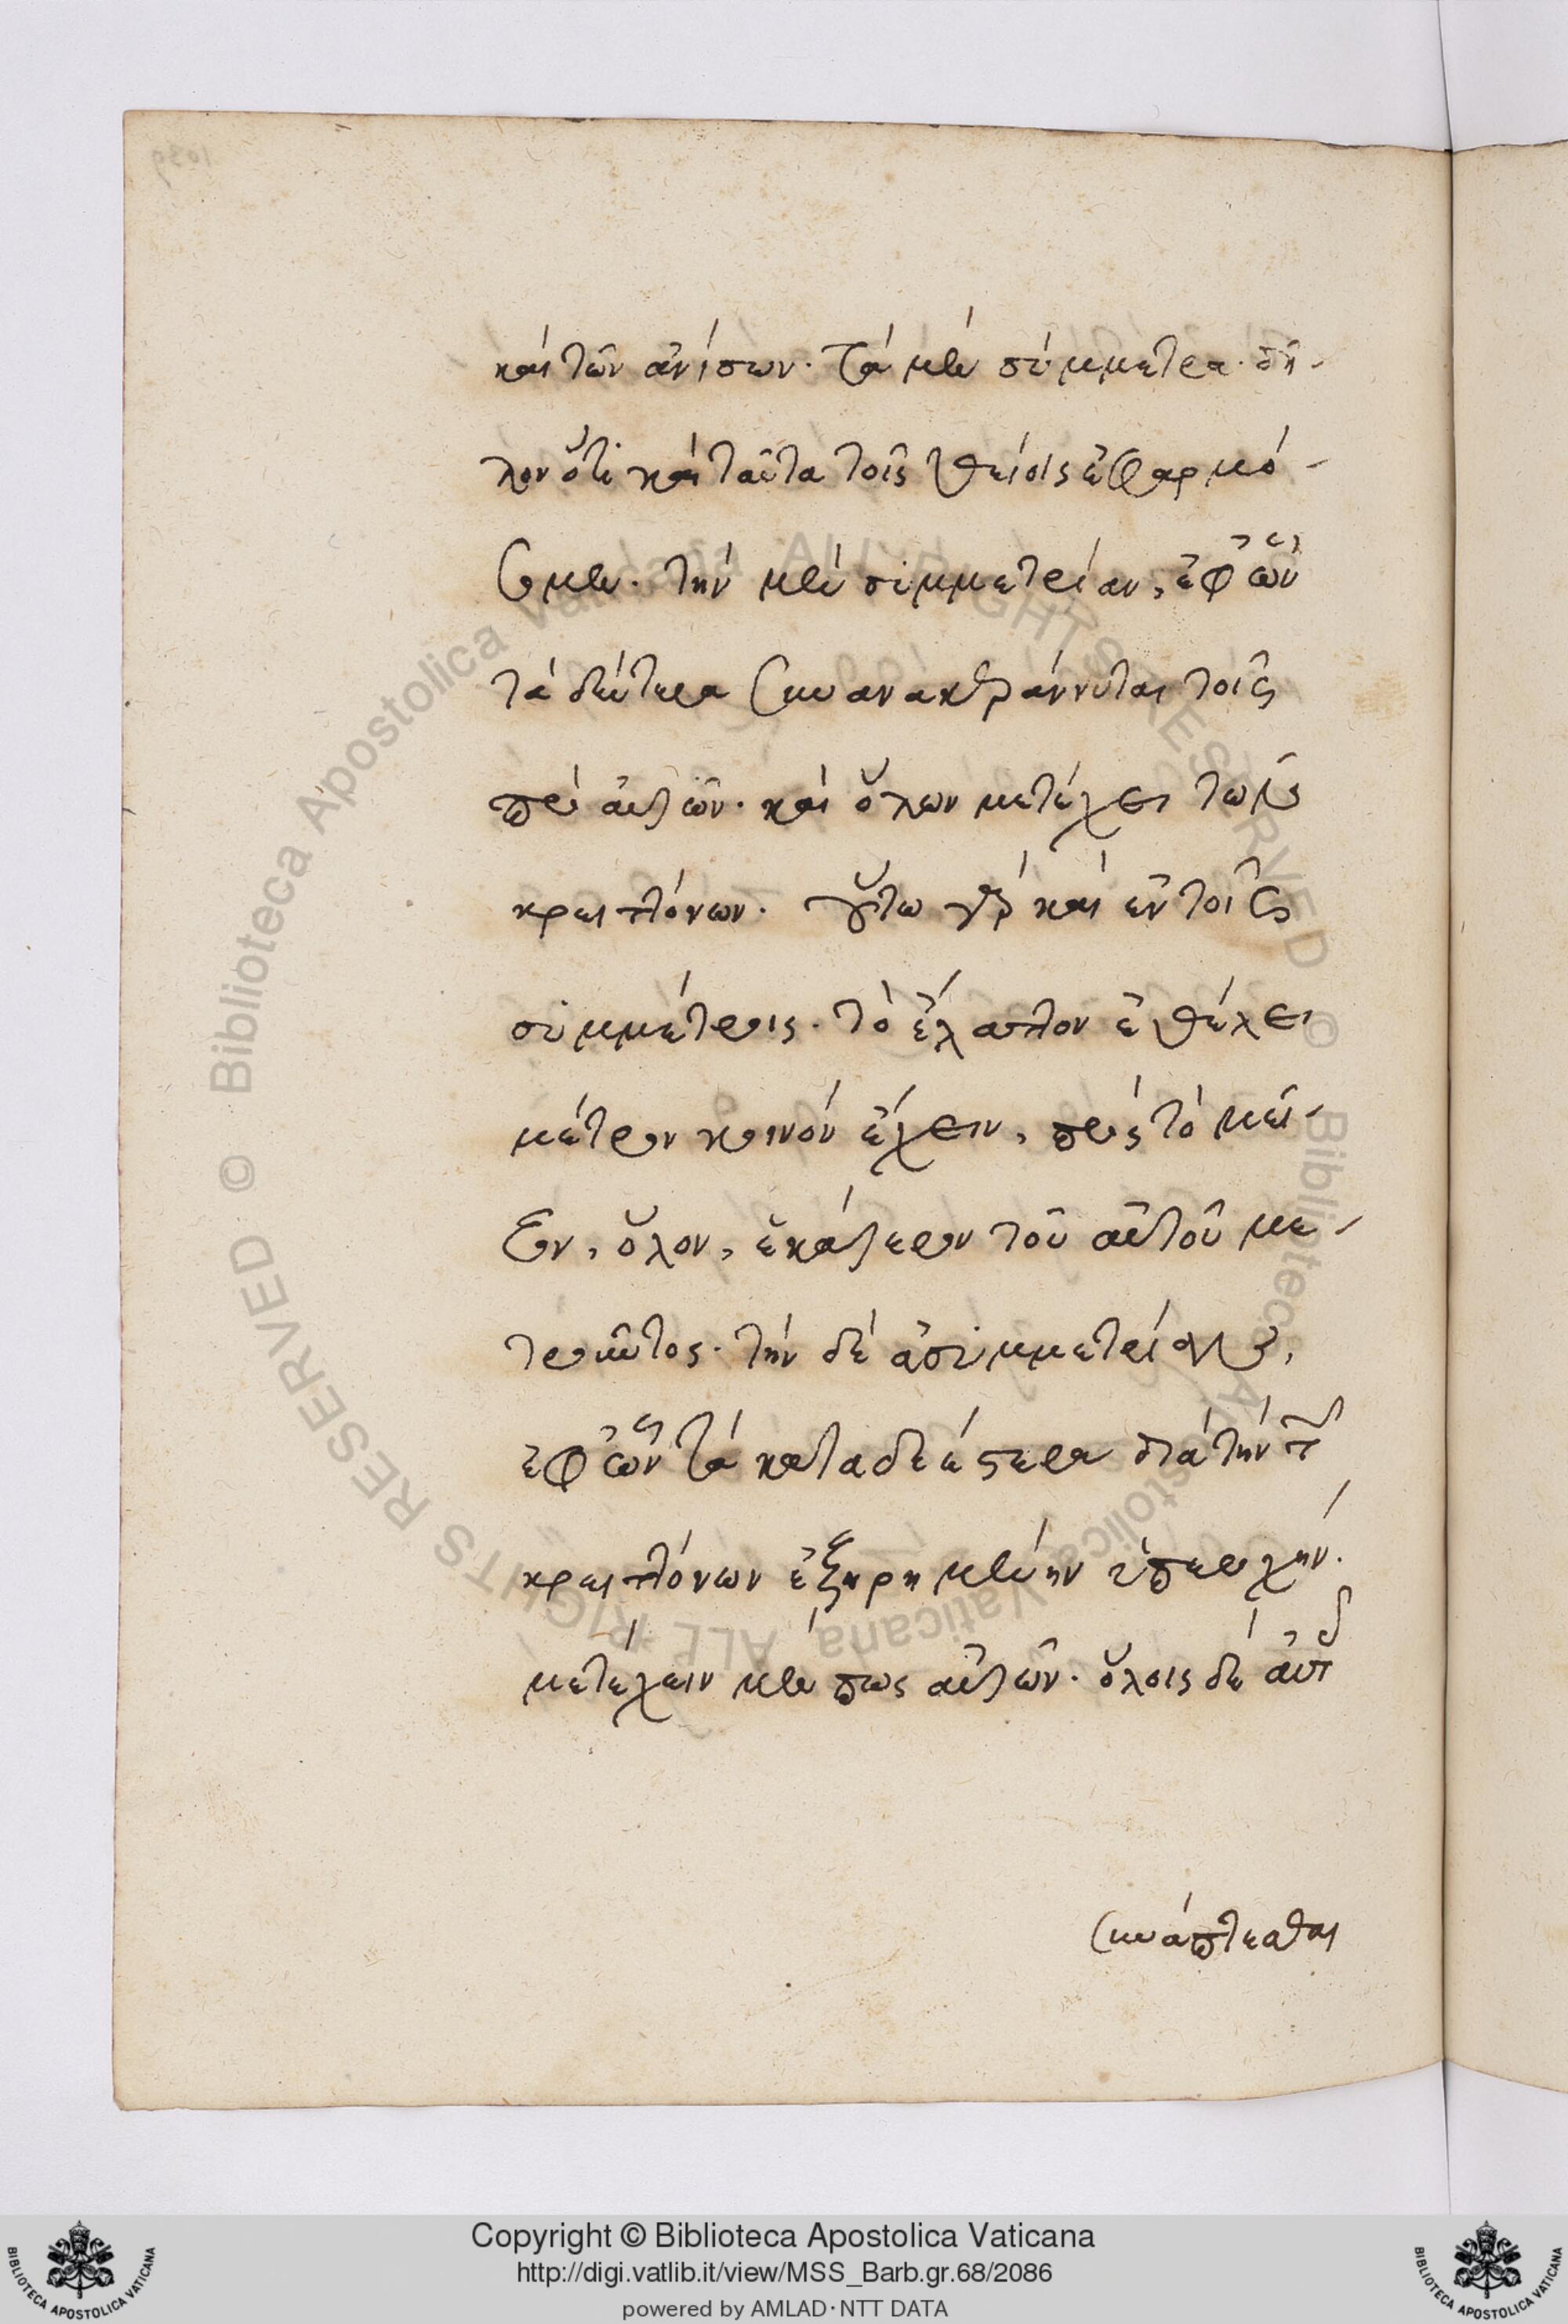 καὶ τῶν ἀνίσων. τὰ μὲν σύμμετρα. δῆ-
λον ὅτι καὶ ταῦτα τοῖς θείοις ἐφαρμό-
σομεν. τὴν μὲν συμμετρίαν, ἐφ' ὧν
τὰ δεύτερα συνανακεράννυται τοῖς
πρὸ αὐτῶν. καὶ ὅλων μετέχει τῶν
κρειττόνων. οὕτω γὰρ καὶ ἐν τοῖς
συμμέτροις. τὸ ἔλαττον ἐθέλει
μέτρον κοινὸν ἔχειν, πρὸς τὸ μεῖ-
ζον, ὅλον, ἑκάτερον τοῦ αὐτοῦ με-
τροῦντος. τὴν δὲ ἀσυμμετρίαν,
ἐφ' ὧν τὰ καταδεέστερα διὰ τὴν τῶν
κρειττόνων ἐξῃρημένην ὑπεροχήν.
μετέχειν μέν πως αὐτῶν. ὅλοις δὲ αὐτοῖς
συνάπτεσθαι
Copyright © Biblioteca Apostolica Vaticana
http://digi.vatlib.it/view/MSS_Barb.gr.68/2086
powered by AMLAD·NTT DATA
© Biblioteca Apostolica Vaticana ALL RIGHTS RESERVED © Biblioteca Apostolica Vaticana ALL RIGHTS RESERVED
BIBLIOTECA APOSTOLICA VATICANA
BIBLIOTECA APOSTOLICA VATICANA